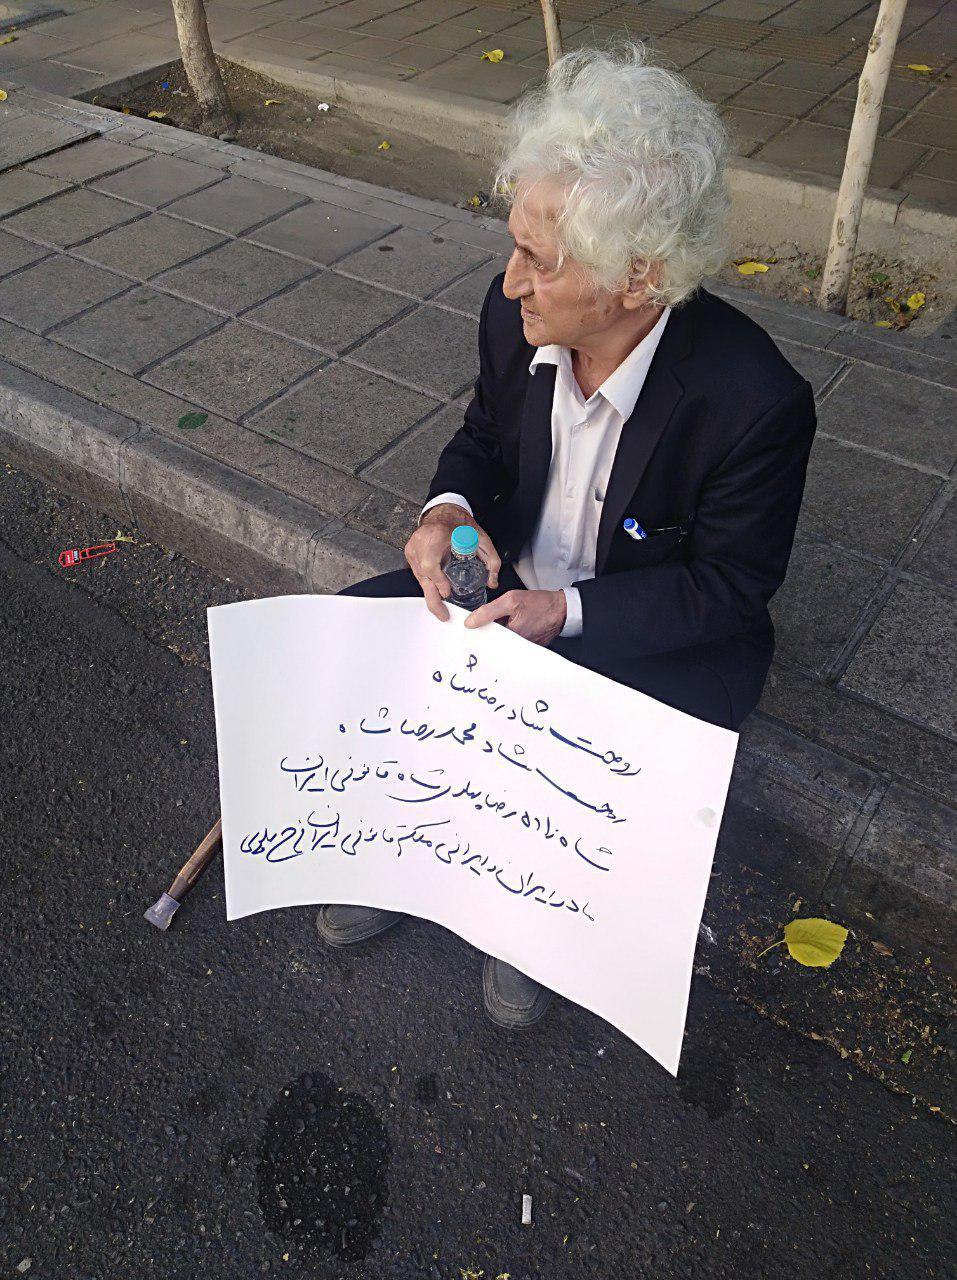 روحت شاد رضا شاه
روحت شاد محمد رضا شاه
شاه زاده رضا پهلوی شاه قانونی ایران
مادر ایران و ایرانی ملکه قانونی ایران فرح پهلوی